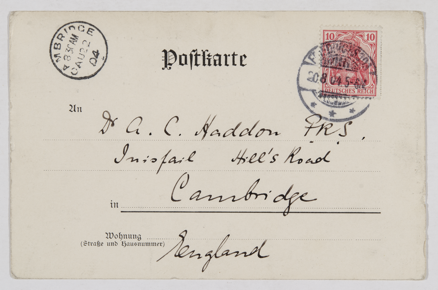 CAMBRIDGE
8.30AM
AU 22
04
Postkarte
10 10
DEUTSCHES REICH
20.8.04.5-6
An
Dr A. C. Haddon FRS,
Inisfail Hill's Road
in Cambridge
Wohnung
(Straße und Hausnummer)
England